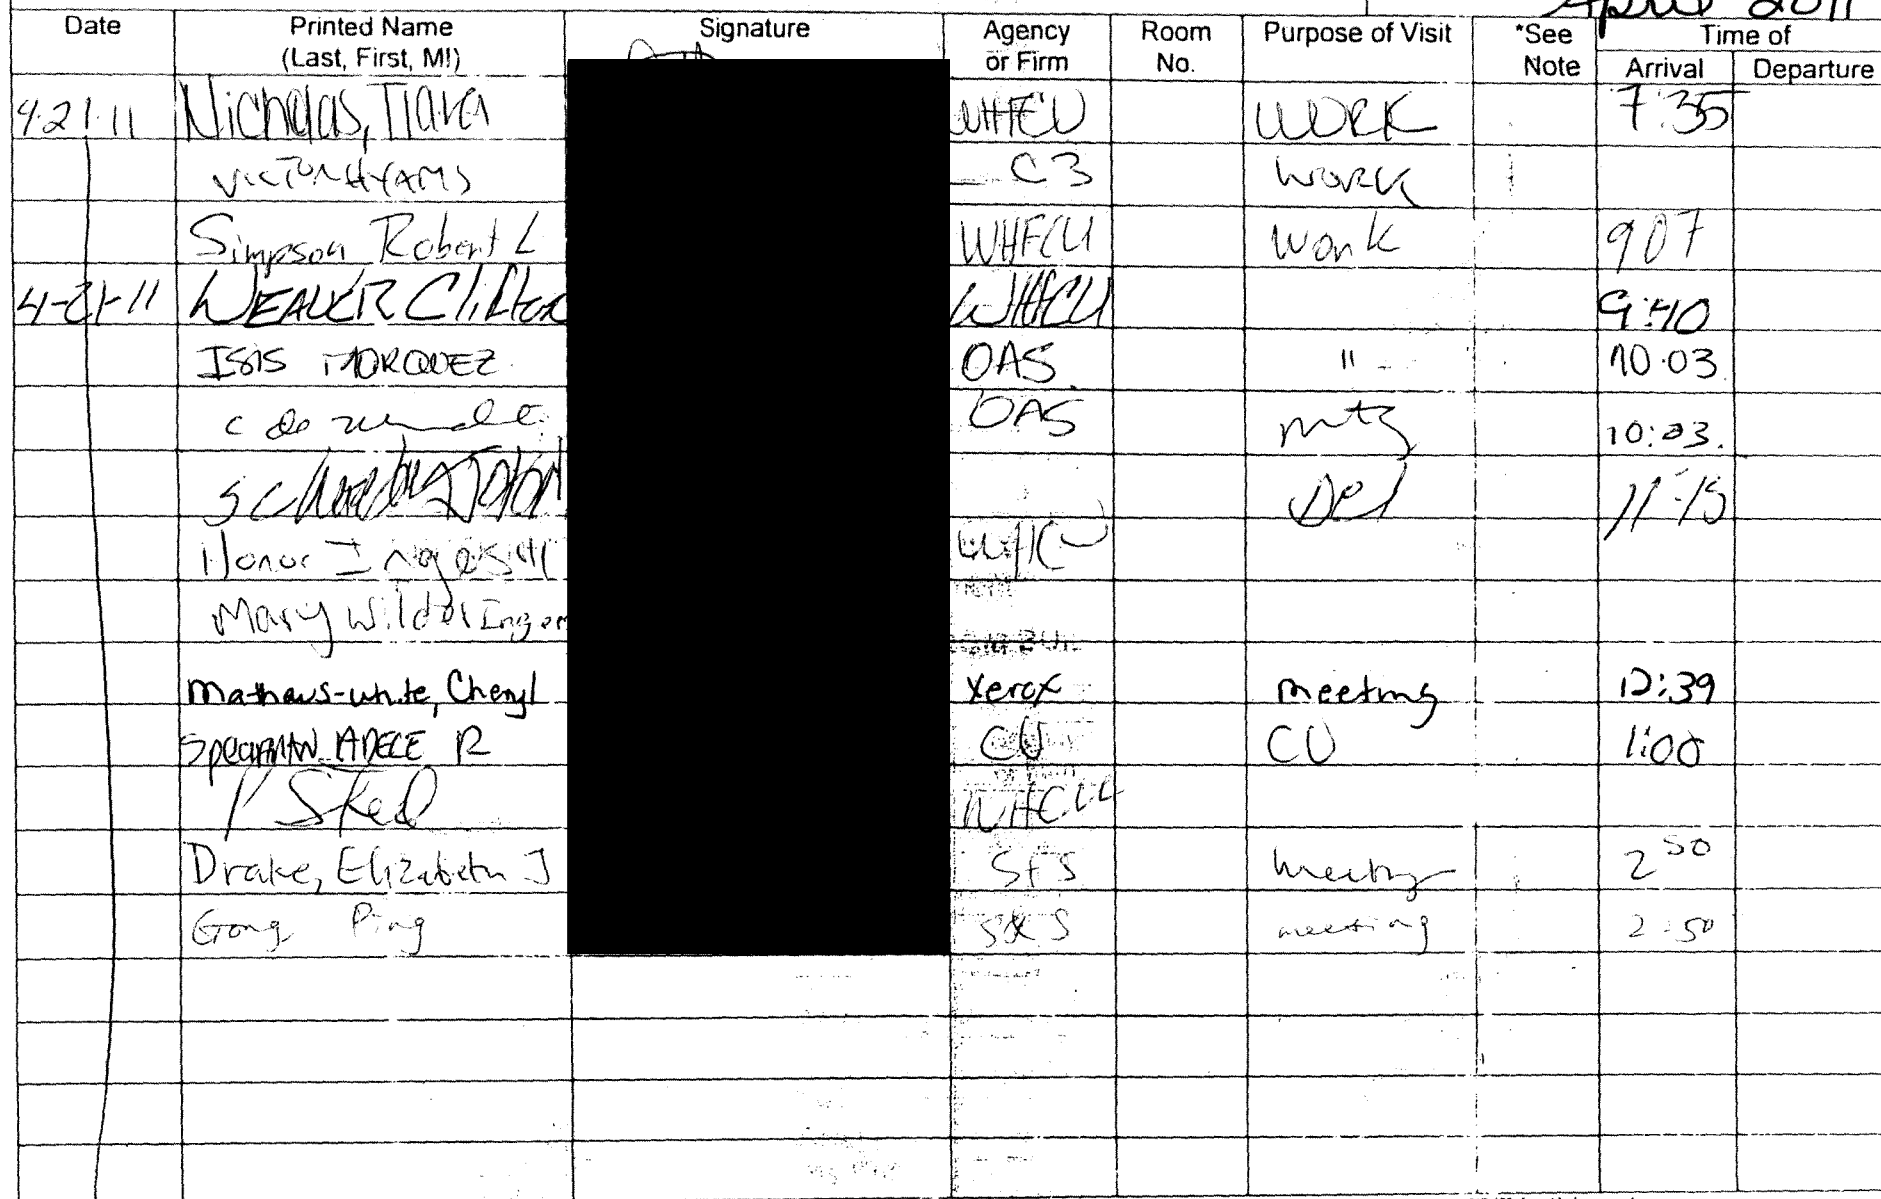 April 2011
Date Printed Name Signature Agency Room Purpose of Visit *See Time of
(Last, First, MI) or Firm No. Note Arrival Departure
4-21-11 Nicholas, Tiara WHFCU WORK 7:35
VICTOR HYAMS C3 WORK
Simpson Robert L WHFCU Work 907
4-21-11 WEAVER Clifton WHFCU 9:40
ISIS MORQUEZ OAS " 10:03
c de OAS mtg 10:03.
Del 11-15
Honor
Mary Wilder
Mathews-White, Cheryl Xerox meeting 12:39
SPEARMAN ADELE R CU CU 1:00
WHCU
Drake, Elizabeth J SFS meeting 2 50
Gong Ping meeting 2:50